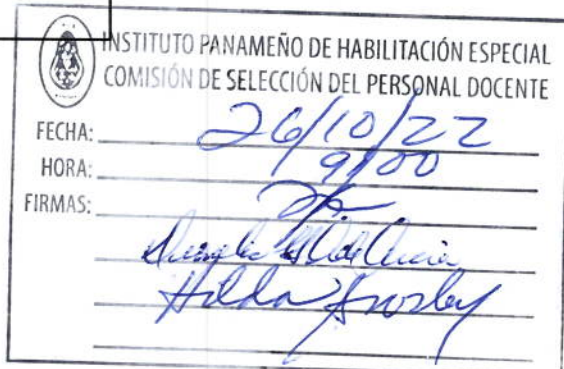 INSTITUTO PANAMEÑO DE HABILITACIÓN ESPECIAL
COMISIÓN DE SELECCIÓN DEL PERSONAL DOCENTE
FECHA: 26/10/22
HORA: 9/00
FIRMAS:
Hilda